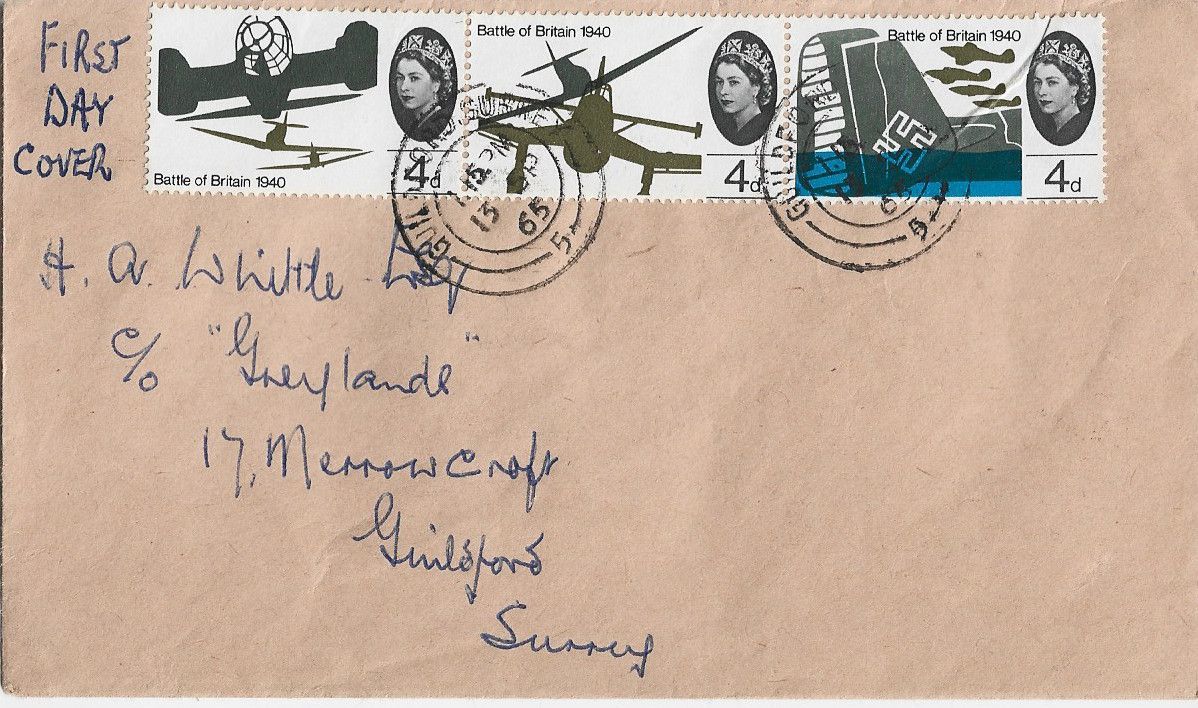 FIRST
DAY
COVER
Battle of Britain 1940
4d
Battle of Britain 1940
4d
Battle of Britain 1940
4d
GUILDFORD SURREY
15 PM
13
65
5
GUILDFORD
65
5
H. A. Whittle Esq
c/o "Greylands"
17, Merrow Croft
Guildford
Surrey